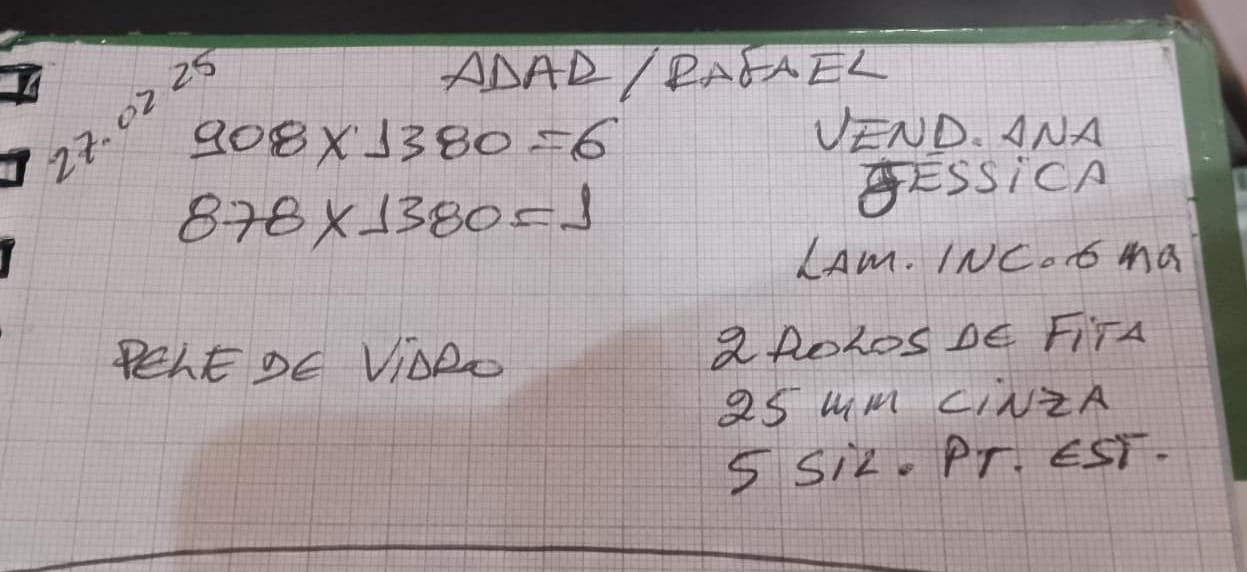 27.02 25
ADAR / RAFAEL
908 X 1380 = 6
878 X 1380 = 1
VEND. ANA
JESSiCA
LAM. INC. 6 mm
PELE DE ViDRO
2 ROLOS DE FiTA
25 mm CiNZA
5 SiL. PT. EST.